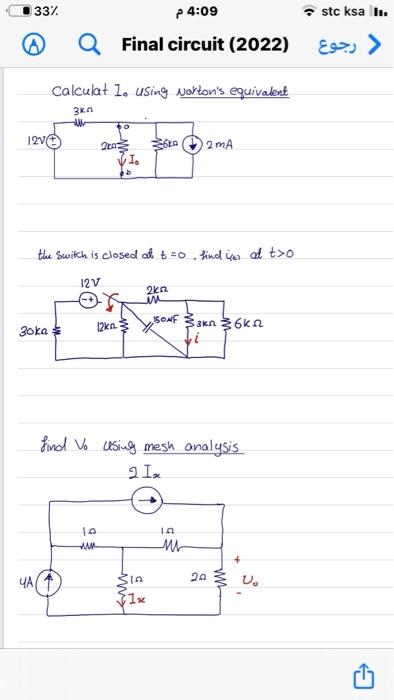 33٪
٤:09 م
stc ksa
Final circuit (2022)
رجوع
Calculat I₀ using Norton's equivalent
3kΩ
a
12V
2kΩ
6kΩ
2mA
I₀
b
the switch is closed at t=0. find i(t) at t>0
12V
2kΩ
30kΩ
12kΩ
3kΩ
6kΩ
i
find V₀ using mesh analysis
2Ix
1Ω
1Ω
4A
1Ω
2Ω
+
V₀
-
Ix